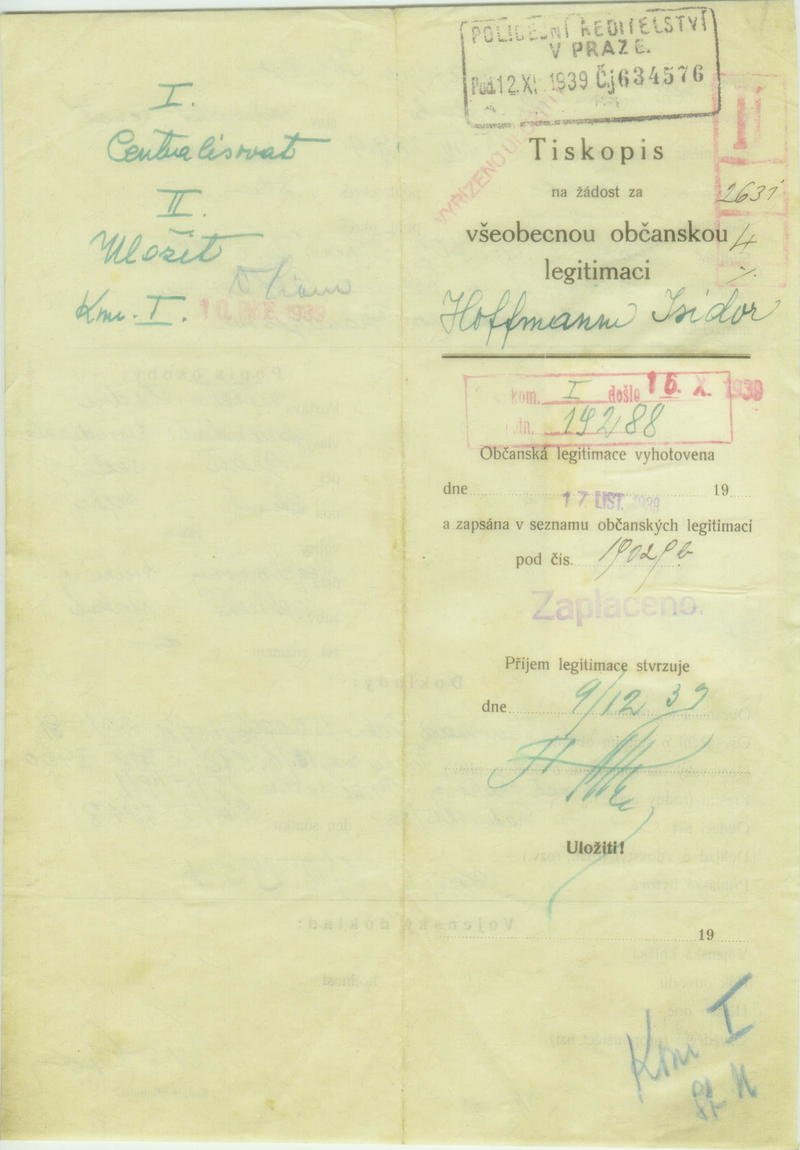 I.
Centralisovat
II.
Uložit
Kom. I.
10. 1939
POLICEJNÍ ŘEDITELSTVÍ
V PRAZE.
Pod. 12. XI. 1939 Čj 634576
VYŘÍZENO
Tiskopis
na žádost za
2631
všeobecnou občanskou
4
legitimaci
Hoffmann Isidor
kom. I došlo 16. X. 1939
19288
Občanská legitimace vyhotovena
dne 17 LIST. 1939 19
a zapsána v seznamu občanských legitimací
pod čís.
Zaplaceno.
Příjem legitimace stvrzuje
dne 9/12 39
Uložiti!
19
Kom I